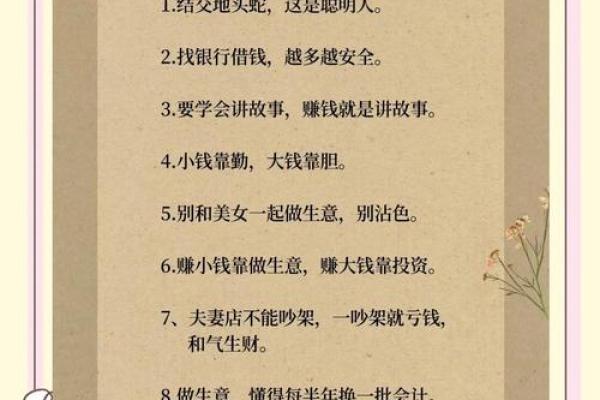 1.结交地头蛇，这是聪明人。
2.找银行借钱，越多越安全。
3.要学会讲故事，赚钱就是讲故事。
4.小钱靠勤，大钱靠胆。
5.别和美女一起做生意，别沾色。
6.赚小钱靠做生意，赚大钱靠投资。
7、夫妻店不能吵架，一吵架就亏钱，
和气生财。
8.做生意，懂得每半年换一批会计。